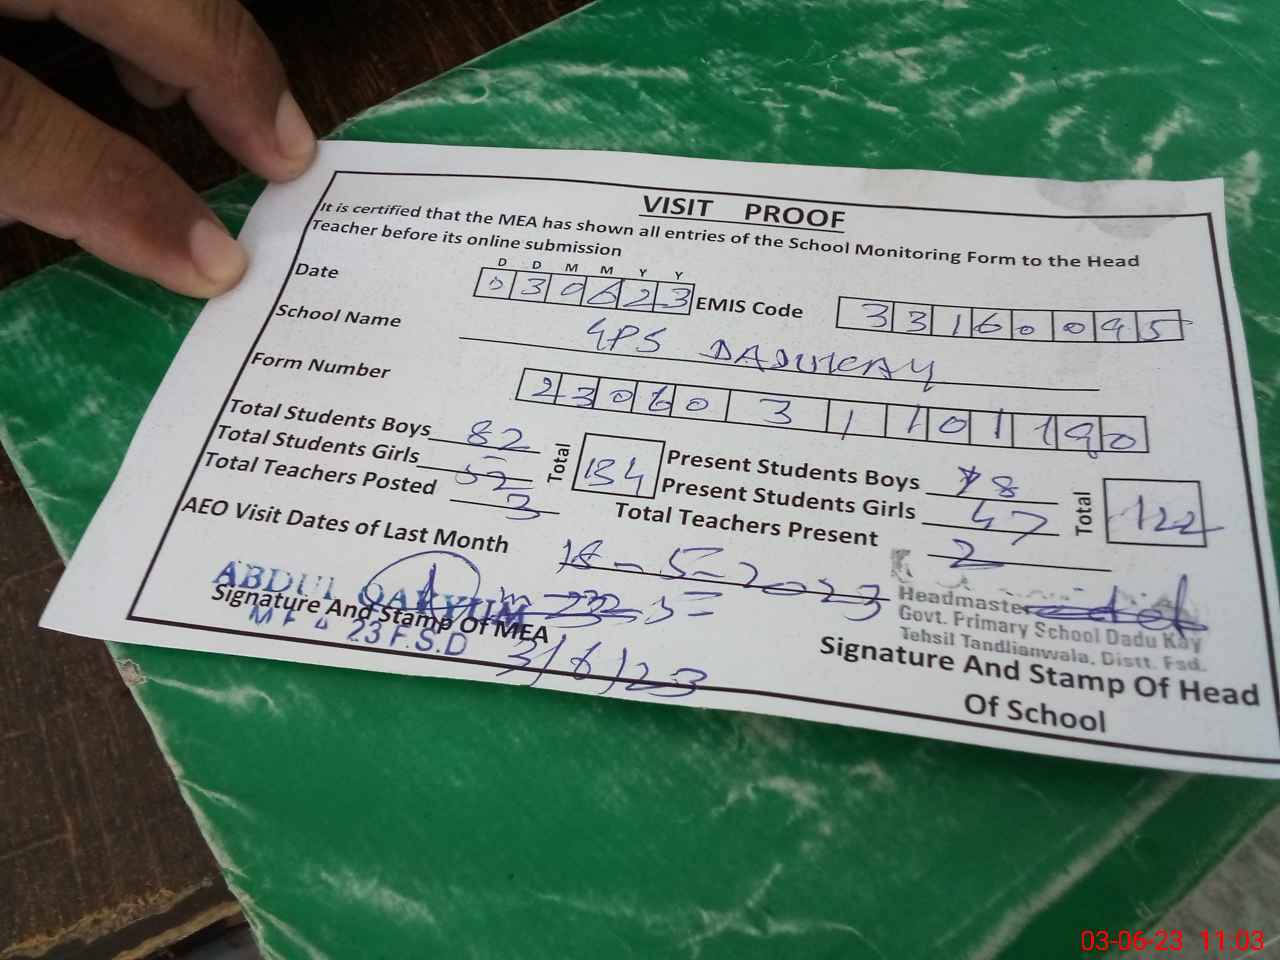 VISIT PROOF
It is certified that the MEA has shown all entries of the School Monitoring Form to the Head
Teacher before its online submission
D D M M Y Y
Date 030623 EMIS Code 33160095
School Name GPS DADUKAY
Form Number 2306031101190
Total Students Boys 82 Total 134 Present Students Boys 78 Total 122
Total Students Girls 52 Present Students Girls 47
Total Teachers Posted 3 Total Teachers Present 2
AEO Visit Dates of Last Month 18-5-2023
ABDUL QAYYUM
Signature And Stamp Of MEA
MEA 23 F.S.D
3/6/23
Headmaster
Govt. Primary School Dadu Kay
Tehsil Tandlianwala, Distt. Fsd.
Signature And Stamp Of Head
Of School
03-06-23 11:03